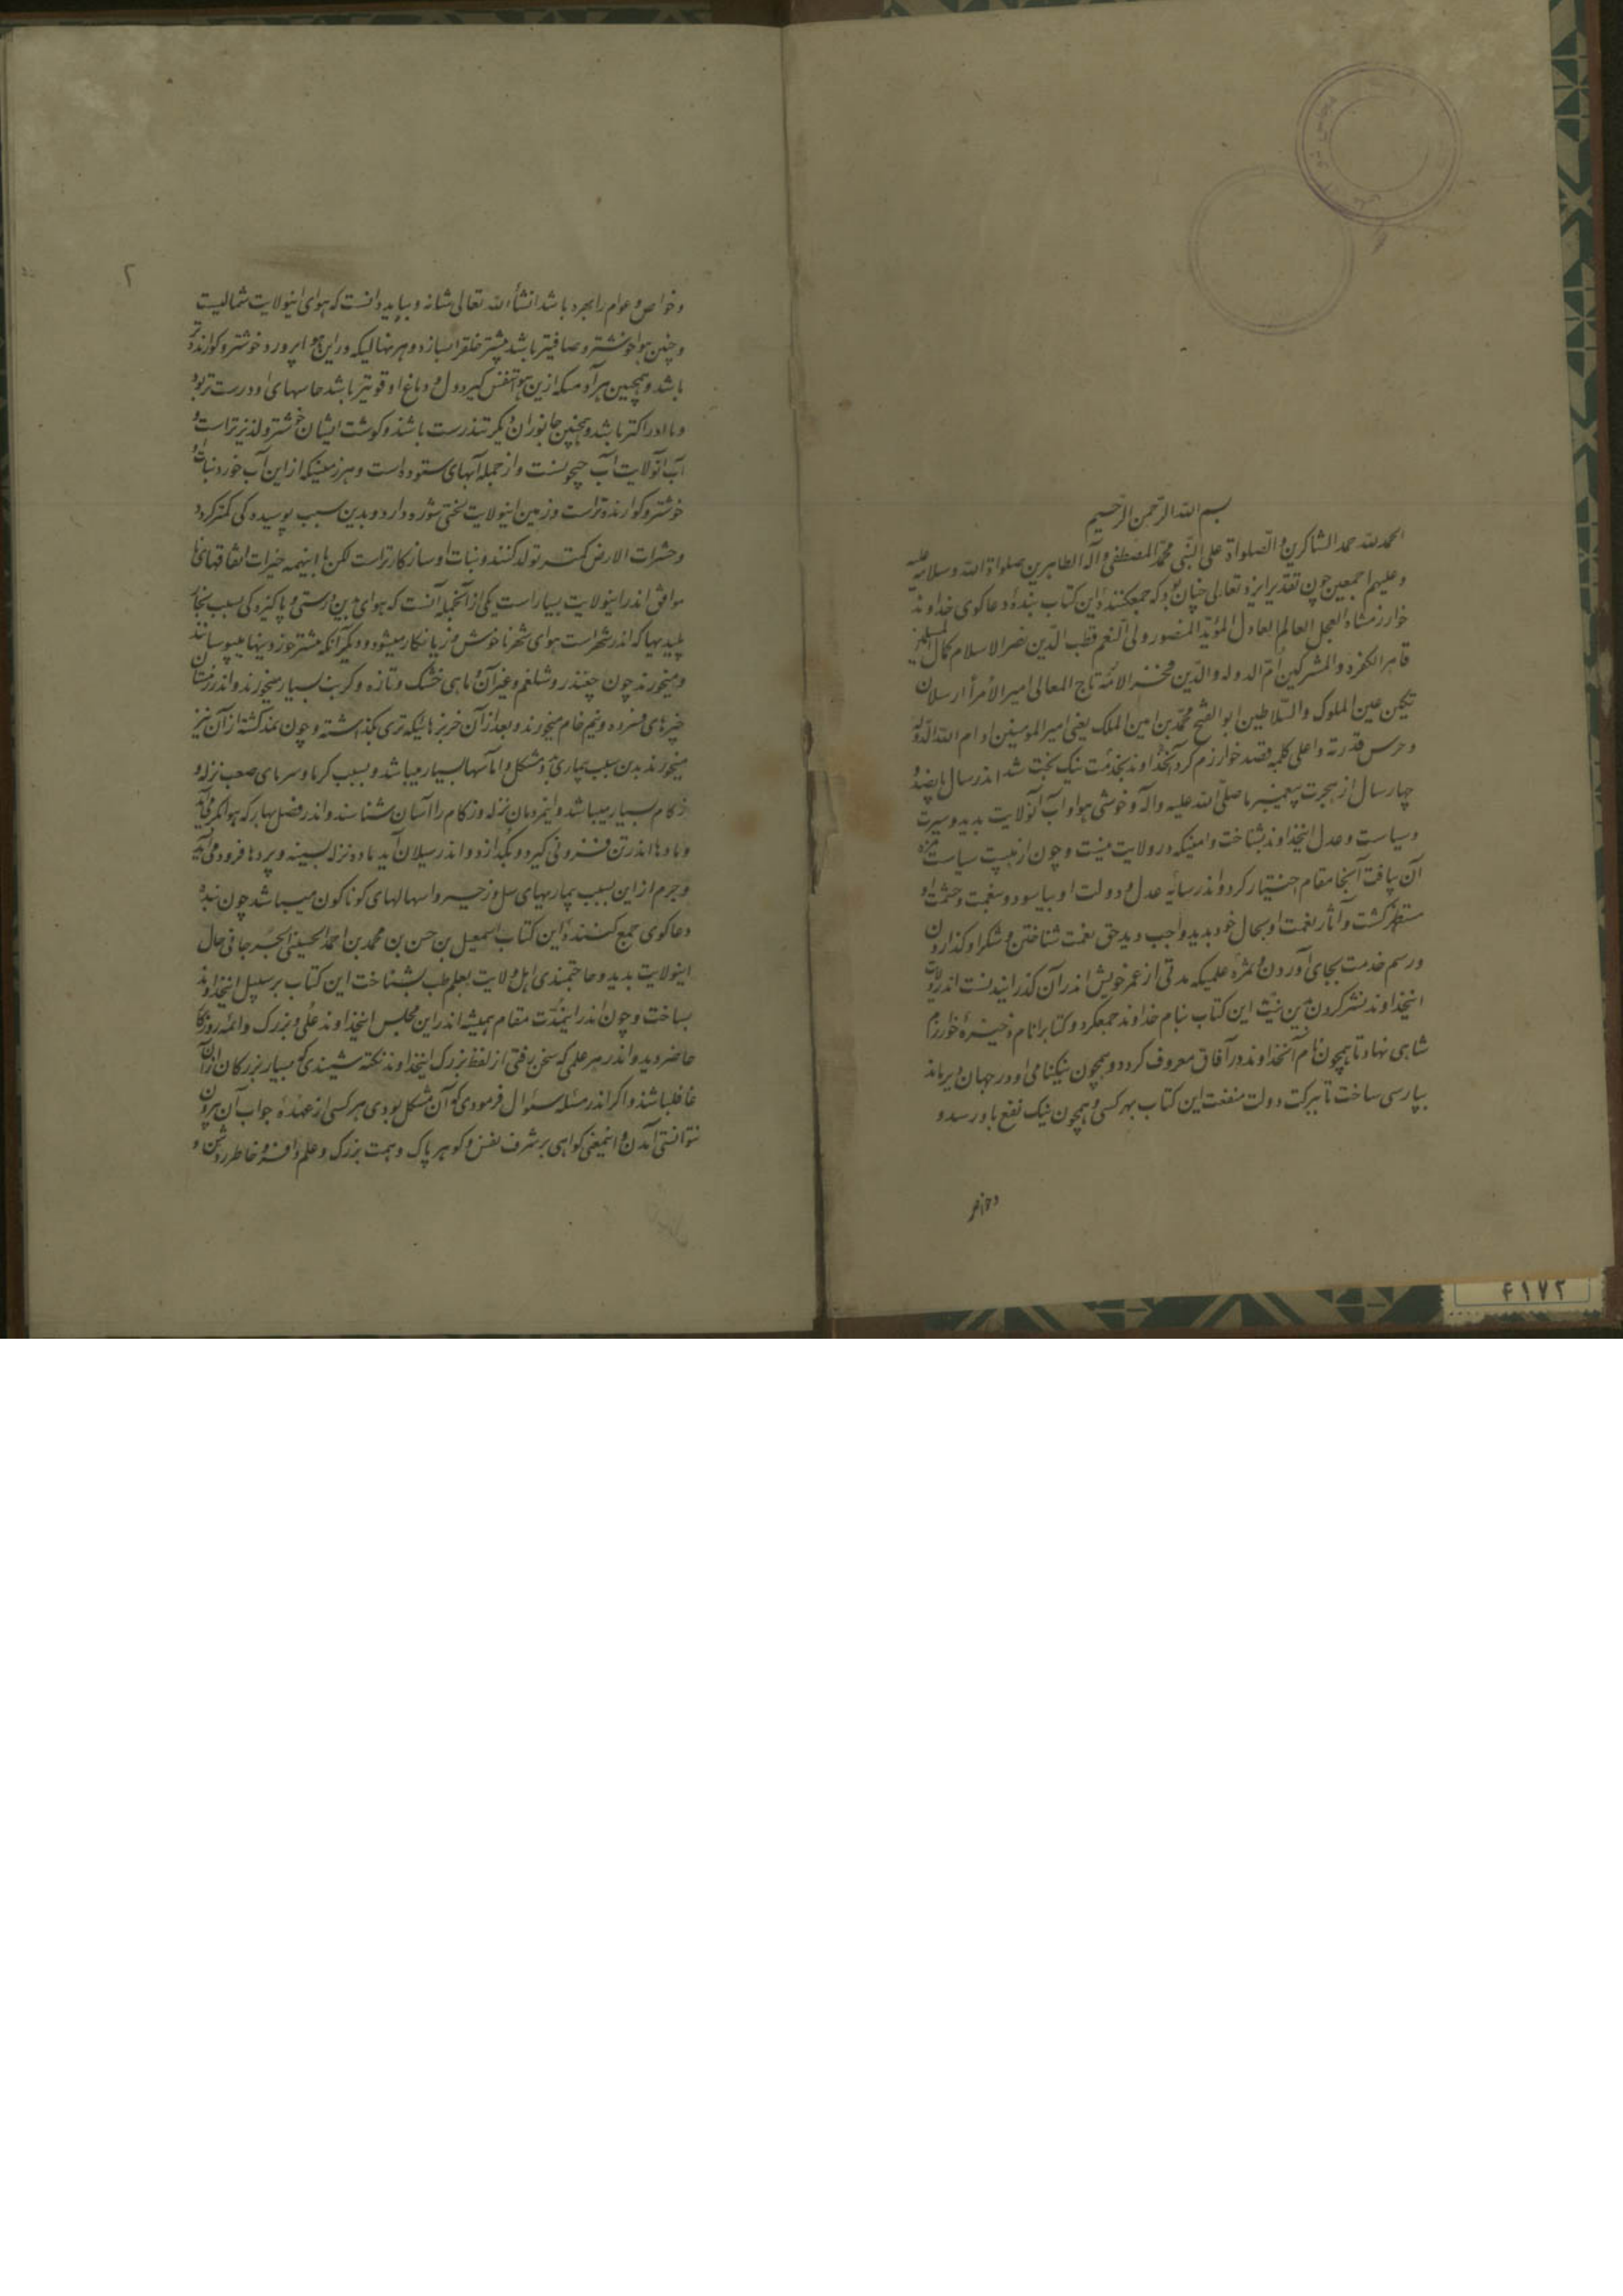 بسم الله الرحمن الرحیم
الحمدلله حمد الشاکرین والصلواة علی النبی محمد المصطفی وآله الطاهرین صلواة الله وسلامه علیه
وعلیهم اجمعین چون تقدیر ایزد تعالی چنان بود که جمعکنندۀ این کتاب بنده و دعاکوی خداوند
خوارزمشاه العجل العالم العادل المؤید المنصور ولی النعم قطب الدین نصر الاسلام کمال المسلمین
قاهر الکفره والمشرکین الدوله والدین فخر الائمه تاج المعالی امیر الأمرأ ارسلان
تکین عین الملوک والسلاطین ابو الفتح محمد بن امین الملک یعنی امیر المومنین ادام الله الدوله
وحرس قدرته واعلی کلمه قصد خوارزم کرد بخدمت نیک بخت شد اندر سال پانصد و
چهار سال از هجرت پیغمبر ما صلی الله علیه وآله وخوشی هوا و آب آنولایت بدید وسیرت
وسیاست وعدل اینخداوند بشناخت وامنیکه در ولایت وچون از سیاست
آن یافت آنجا مقام اختیار کرد واندر سایه عدل و دولت او بیاسود و بنعمت وحشمت او
مستظهر کشت وآثار نعمت او بحال خود بدید واجب دید حق نعمت شناختن وشکر او کذاردن
ورسم خدمت بجای آوردن وثمره علمیکه مدتی از عمر خویش اندر آن کذرانیدنست اندر ولایت
اینخداوند نشر کردن بدین نیت این کتاب بنام خداوند جمعکرد و کتابرا نام ذخیرۀ خوارزم
شاهی نهاد تا همچون نام آنخداوند در آفاق معروف کردد وهمچون نیکنامی او در جهان دیر ماند
بپارسی ساخت تا ببرکت دولت منفعت این کتاب بهر کسی وهمچون نیک نفع باو رسد و
وخواص
۲
وخواص وعوام را بهره باشد انشأ الله تعالی شانه و بباید دانست که هوای اینولایت شمالیست
وچنین هوا خوشتر وصافیتر باشد بیشتر خلق را بسازد وهر نهالیکه در این هوا پرورد خوشتر وکوارنده‌تر
باشد وهمچنین هر آدمیکه ازین هوا تنفس کیرد دل و دماغ او قویتر باشد حاسهای او درست تر بود
وبا ادراکتر باشد وهمچنین جانوران دیکر تندرست باشند وکوشت ایشان خوشتر ولذیزتر است و
آب آنولایت آب جیحونست واز جمله آبهای ستوده است وهر زمینیکه از این آب خورد نبات او
خوشتر وکوارنده‌تر است وزمین اینولایت لختی شوره دارد وبدین سبب پوسیده کی کمتر کردد
وحشرات الارض کمتر تولد کنند ونبات او سازکارتر است لکن با اینهمه خیرات اتفاقهای نا
موافق اندر اینولایت بسیار است یکی از آنجمله آنست که هوای بدین درستی و پاکیزه کی بسبب بخار
پلیدیها که اندر شهر است هوای شهر ناخوش وزیانکار میشود ودیکر آنکه بیشتر خوردینها بپوسانند
ومیخورند چون چغندر وشلغم وغیر آن وماهی خشک وتازه وکرنب بسیار میخورند واندر زمستان
خبزهای فسرده ونیم خام میخورند وبعد از آن خربزهائیکه تری بکذاشته وچون کذشته از آن نیز
میخورند بدین سبب بیماری مشکل و اماسها بسیار میباشد وبسبب کرما وسرمای صعب نزله و
زکام بسیار میباشد واینمردمان نزله وزکام را آسان شناسند واندر فصل بهار که هوا کرم آید
ومادها اندر تن فزونی کیرد وبکدازد واندر سیلان آید ماده نزله بسینه و فرود می آید
وجرم از این سبب بیماریهای سل وزحیر واسهالهای کوناکون میباشد چون بنده
دعاکوی جمع کنندۀ این کتاب اسمعیل بن حسن بن محمد بن احمد الحسینی الجرجانی حال
اینولایت بدید وحاجتمندی اهل ولایت بعلم طب بشناخت این کتاب بر سبیل اینخداوند
بساخت وچون اندر اینمدت مقام همیشه اندر این مجلس اینخداوند علی وبزرک وائمه روزکار
حاضر دید واندر هر علمی که سخن رفتی از لفظ بزرک اینخداوند نکته شنیندی که بسیار بزرکان از آن
غافلباشند واکر اندر مسئله سئوال فرمودی که آن مشکل بودی هر کسی از عهدۀ جواب آن بیرون
نتوانستی آمدن واینمعنی کواهی بر شرف نفس وکوهر پاک وهمت بزرک وعلم وافر وخاطر روشن و
۶۱۷۲